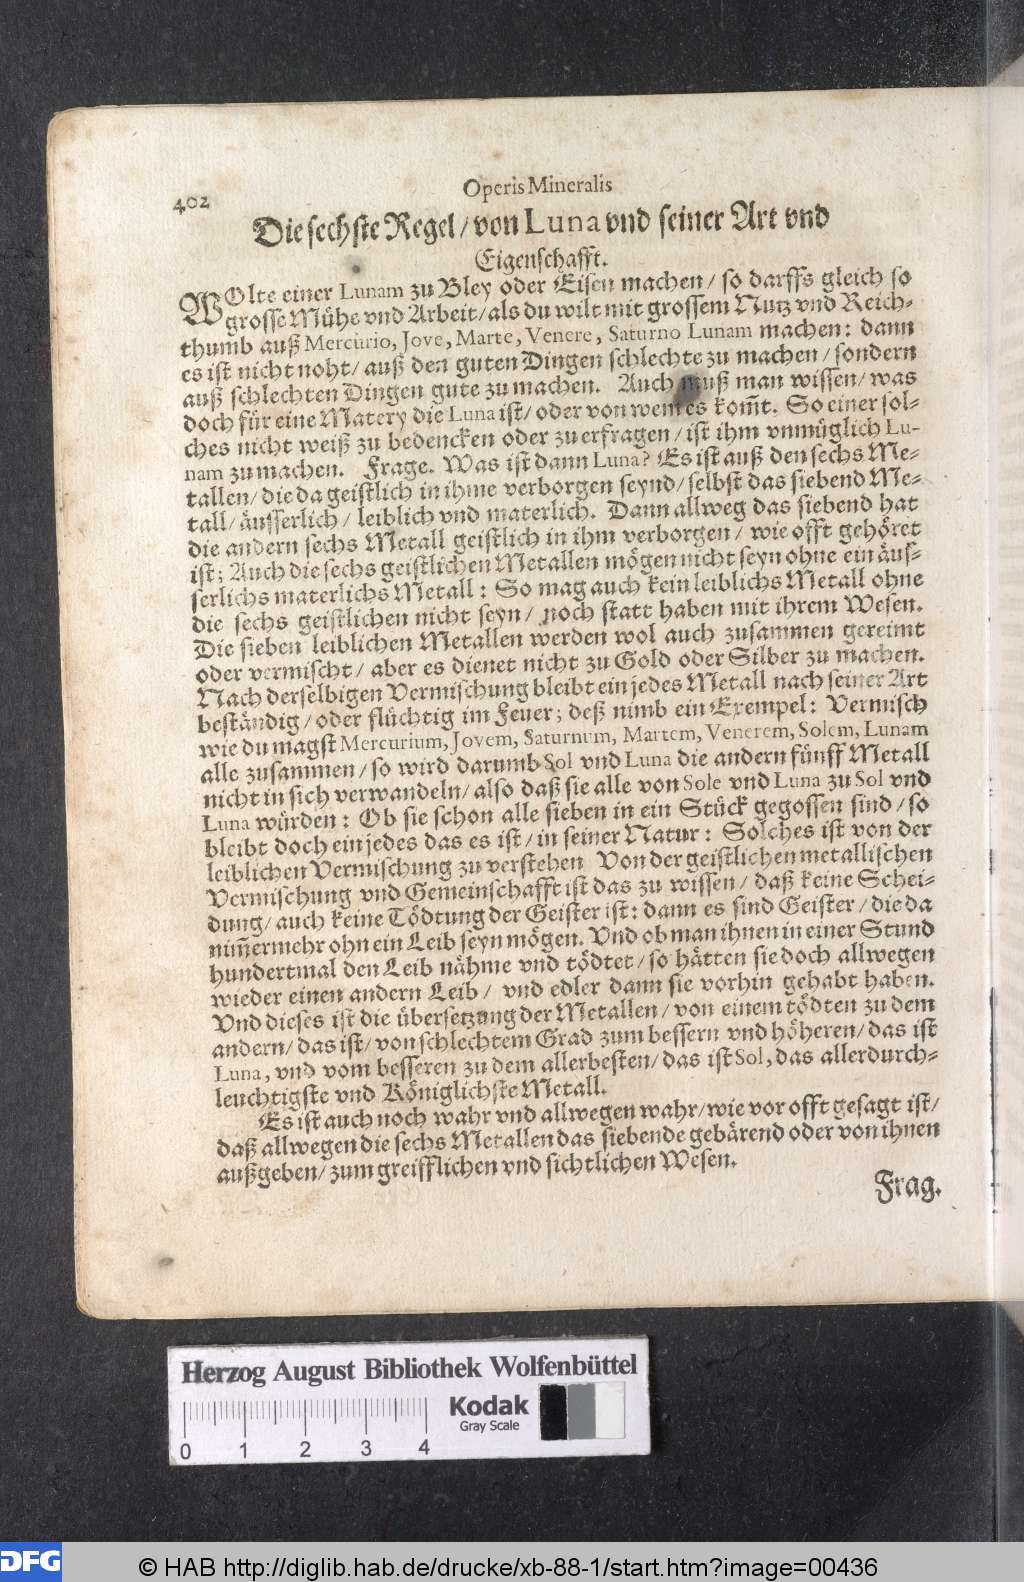 402
Operis Mineralis
Die sechste Regel / von Luna vnd seiner Art vnd
Eigenschafft.
WOlte einer Lunam zu Bley oder Eisen machen / so darffs gleich so
grosse Mühe vnd Arbeit / als du wilt mit grossem Nutz vnd Reich-
thumb auß Mercurio, Jove, Marte, Venere, Saturno Lunam machen: dann
es ist nicht noht / auß den guten Dingen schlechte zu machen / sondern
auß schlechten Dingen gute zu machen. Auch muß man wissen / was
doch für eine Matery die Luna ist / oder von wem es kom̃t. So einer sol-
ches nicht weiß zu bedencken oder zu erfragen / ist ihm vnmüglich Lu-
nam zu machen. Frage. Was ist dann Luna? Es ist auß den sechs Me-
tallen / die da geistlich in ihme verborgen seynd / selbst das siebend Me-
tall / äusserlich / leiblich vnd materlich. Dann allweg das siebend hat
die andern sechs Metall geistlich in ihm verborgen / wie offt gehöret
ist; Auch die sechs geistlichen Metallen mögen nicht seyn ohne ein äus-
serlichs materlichs Metall: So mag auch kein leiblichs Metall ohne
die sechs geistlichen nicht seyn / noch statt haben mit ihrem Wesen.
Die sieben leiblichen Metallen werden wol auch zusammen gereimt
oder vermischt / aber es dienet nicht zu Gold oder Silber zu machen.
Nach derselbigen Vermischung bleibt ein jedes Metall nach seiner Art
beständig / oder flüchtig im Feuer; deß nimb ein Exempel: Vermisch
wie du magst Mercurium, Jovem, Saturnum, Martem, Venerem, Solem, Lunam
alle zusammen / so wird darumb Sol vnd Luna die andern fünff Metall
nicht in sich verwandeln / also daß sie alle von Sole vnd Luna zu Sol vnd
Luna würden: Ob sie schon alle sieben in ein Stück gegossen sind / so
bleibt doch ein jedes das es ist / in seiner Natur: Solches ist von der
leiblichen Vermischung zu verstehen Von der geistlichen metallischen
Vermischung vnd Gemeinschafft ist das zu wissen / daß keine Schei-
dung / auch keine Tödtung der Geister ist: dann es sind Geister / die da
nim̃ermehr ohn ein Leib seyn mögen. Vnd ob man ihnen in einer Stund
hundertmal den Leib nähme vnd tödtet / so hätten sie doch allwegen
wieder einen andern Leib / vnd edler dann sie vorhin gehabt haben.
Vnd dieses ist die übersetzung der Metallen / von einem tödten zu dem
andern / das ist / von schlechtem Grad zum bessern vnd höheren / das ist
Luna, vnd vom besseren zu dem allerbesten / das ist Sol, das allerdurch-
leuchtigste vnd Königlichste Metall.
Es ist auch noch wahr vnd allwegen wahr / wie vor offt gesagt ist /
daß allwegen die sechs Metallen das siebende gebärend oder von ihnen
außgeben / zum greifflichen vnd sichtlichen Wesen.
Frag.
Herzog August Bibliothek Wolfenbüttel
Kodak
Gray Scale
0 1 2 3 4
DFG
© HAB http://diglib.hab.de/drucke/xb-88-1/start.htm?image=00436